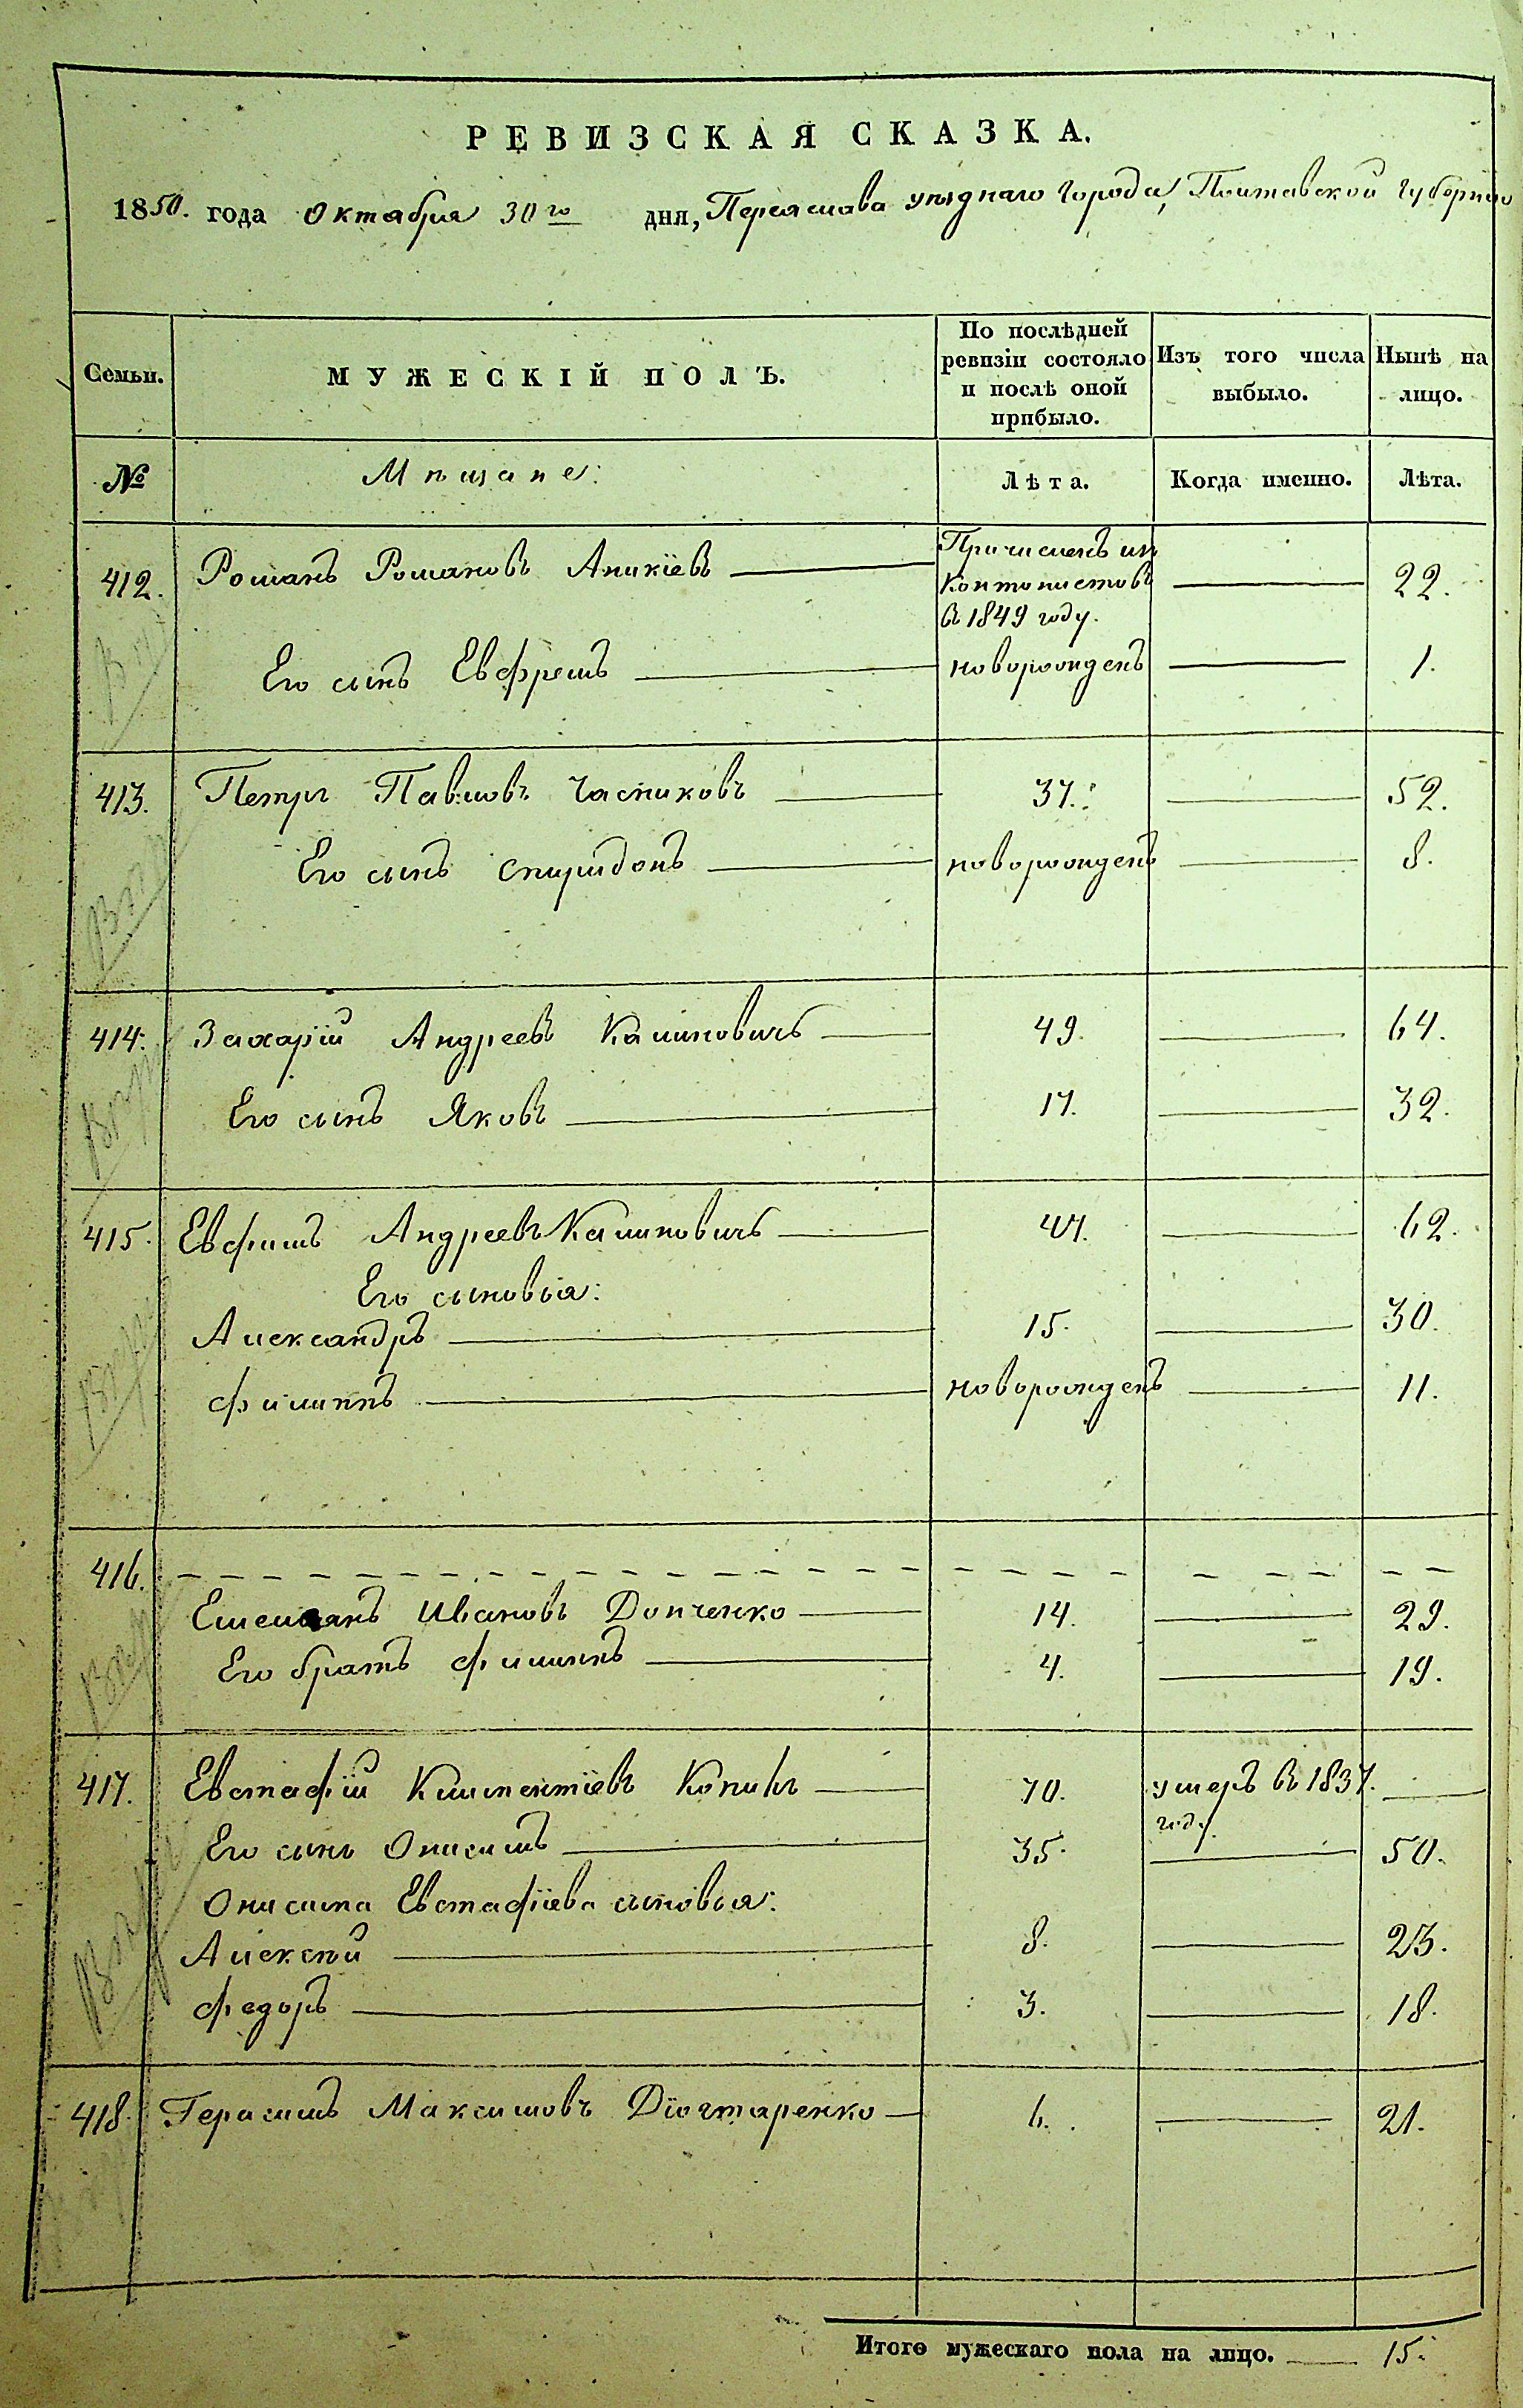 РЕВИЗСКАЯ СКАЗКА.
1850. года Октября 30го дня, Переяслава уѣзднаго города, Полтавской губерніи
Семьи. МУЖЕСКІЙ ПОЛЪ. По послѣдней ревизіи состояло и послѣ оной прибыло. Изъ того числа выбыло. Нынѣ на лицо.
№ Мѣщане: Лѣта. Когда именно. Лѣта.
412. Романъ Романовъ Аникіевъ Причисленъ изъ Контонистовъ въ 1849 году. 22.
Его сынъ Евфремъ новорожденъ 1.
413. Петръ Павловъ Часниковъ 37. 52.
Его сынъ Спиридонъ новорожденъ 8.
414. Захарій Андреевъ Калиновичъ 49. 64.
Его сынъ Яковъ 17. 32.
415. Евфимъ Андреевъ Калиновичъ 47. 62.
Его сыновья:
Александръ 15. 30.
Филипъ новорожденъ 11.
416.
Емельянъ Ивановъ Донченко 14. 29.
Его братъ Филипъ 4. 19.
417. Евстафій Климентіевъ 70. умеръ въ 1837. году.
Его сынъ Онисимъ 35. 50.
Онисима Евстафіева сыновья:
Алексѣй 8. 23.
Федоръ 3. 18.
418. Герасимъ Максимовъ Діогтаренко 6. 21.
Итого мужескаго пола на лицо. 15.